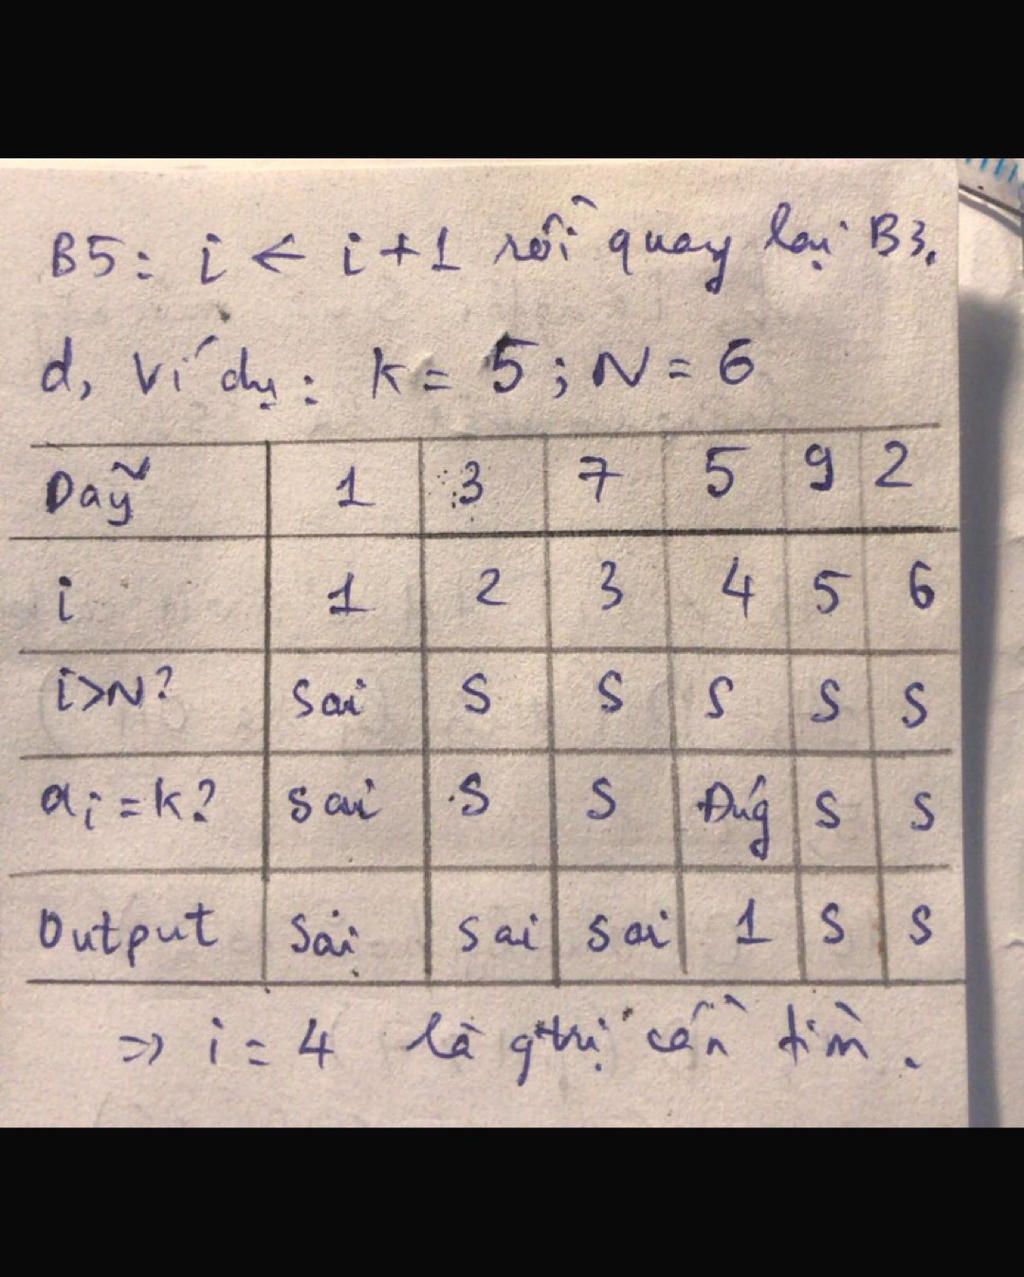 B5: i ← i + 1 rồi quay lại B3.
d, Ví dụ: K = 5; N = 6
Dãy 1 3 7 5 9 2
i 1 2 3 4 5 6
i>N? Sai S S S S S
ai = k? Sai S S Đúg S S
Output Sai Sai Sai 1 S S
=> i = 4 là gtrị cần tìm.